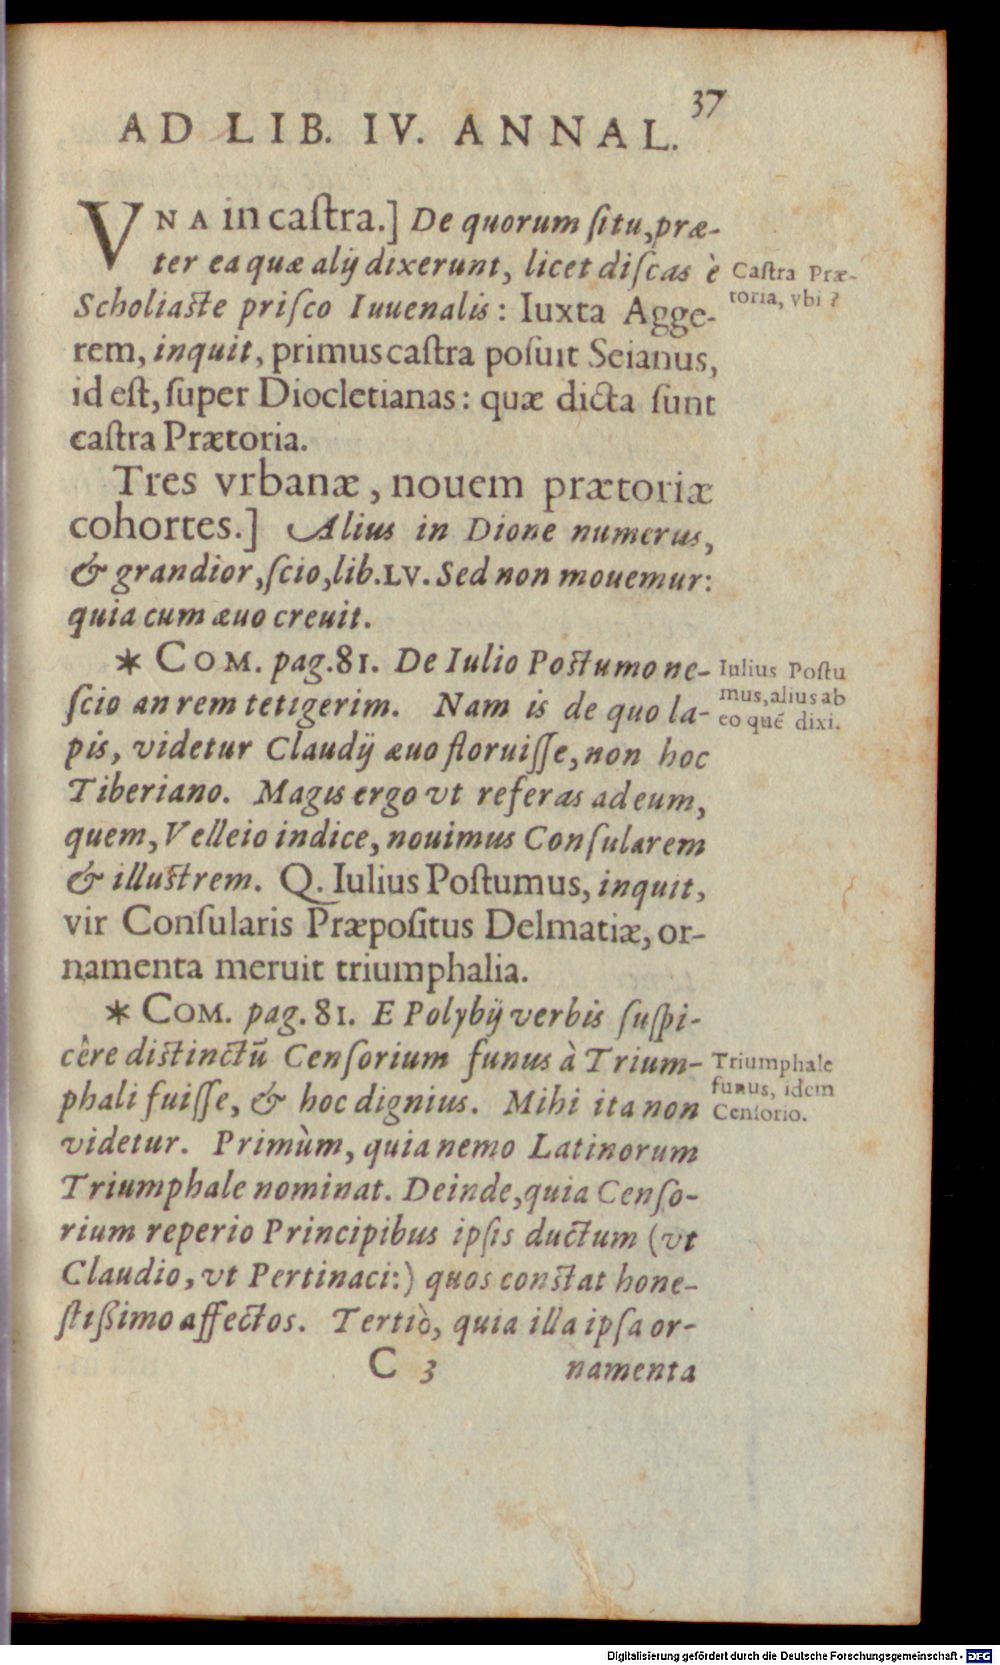 37
AD LIB. IV. ANNAL.
VNA in caſtra.] De quorum ſitu, præ-
ter ea quæ alij dixerunt, licet diſcas è
Scholiaſte priſco Iuuenalis: Iuxta Agge-
rem, inquit, primus caſtra poſuit Seianus,
id eſt, ſuper Diocletianas: quæ dicta ſunt
caſtra Prætoria.
Caſtra Præ-
toria, vbi?
Tres vrbanæ, nouem prætoriæ
cohortes.] Alius in Dione numerus,
& grandior, ſcio, lib. LV. Sed non mouemur:
quia cum æuo creuit.
* COM. pag. 81. De Iulio Poſtumo ne-
ſcio an rem tetigerim. Nam is de quo la-
pis, videtur Claudij æuo floruiſſe, non hoc
Tiberiano. Magis ergo vt referas ad eum,
quem, Velleio indice, nouimus Conſularem
& illuſtrem. Q. Iulius Poſtumus, inquit,
vir Conſularis Præpoſitus Delmatiæ, or-
namenta meruit triumphalia.
Iulius Poſtu
mus, alius ab
eo qué dixi.
* COM. pag. 81. E Polybij verbis ſuſpi-
cêre diſtinctū Cenſorium funus à Trium-
phali fuiſſe, & hoc dignius. Mihi ita non
videtur. Primùm, quia nemo Latinorum
Triumphale nominat. Deinde, quia Cenſo-
rium reperio Principibus ipſis ductum (vt
Claudio, vt Pertinaci:) quos conſtat hone-
ſtißimo affectos. Tertiò, quia illa ipſa or-
Triumphale
funus, idem
Cenſorio.
C 3 namenta
Digitalisierung gefördert durch die Deutsche Forschungsgemeinschaft - DFG